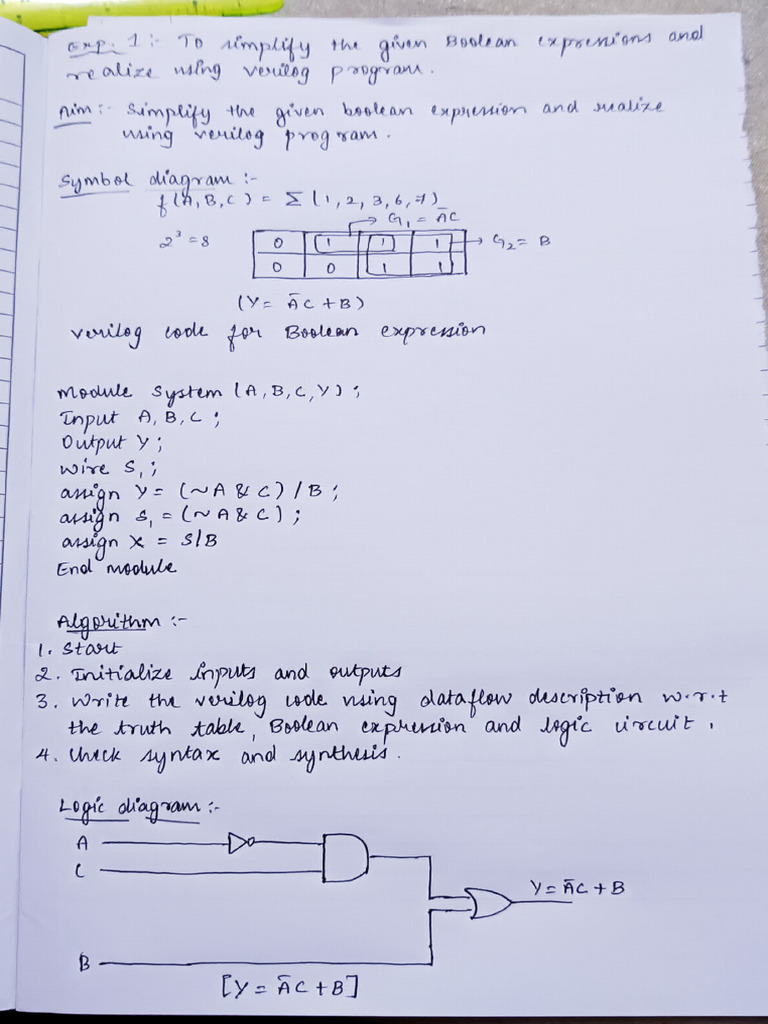 Exp. 1:- To simplify the given Boolean expressions and
realize using verilog program.
Aim:- Simplify the given boolean expression and realize
using verilog program.
Symbol diagram :-
f(A,B,C) = Σ(1,2,3,6,7)
→ G₁ = A̅C
2³ = 8
0 1 1 1 → G₂ = B
0 0 1 1
(Y = A̅C + B)
verilog code for Boolean expression
Module System (A,B,C,Y);
Input A, B, C;
Output Y;
wire S₁;
assign Y = (~A & C) / B;
assign S₁ = (~A & C);
assign X = S/B
End module
Algorithm :-
1. Start
2. Initialize inputs and outputs
3. Write the verilog code using dataflow description w.r.t
the truth table, Boolean expression and logic circuit.
4. Check syntax and synthesis.
Logic diagram :-
A
C
Y = A̅C + B
B
[Y = A̅C + B]